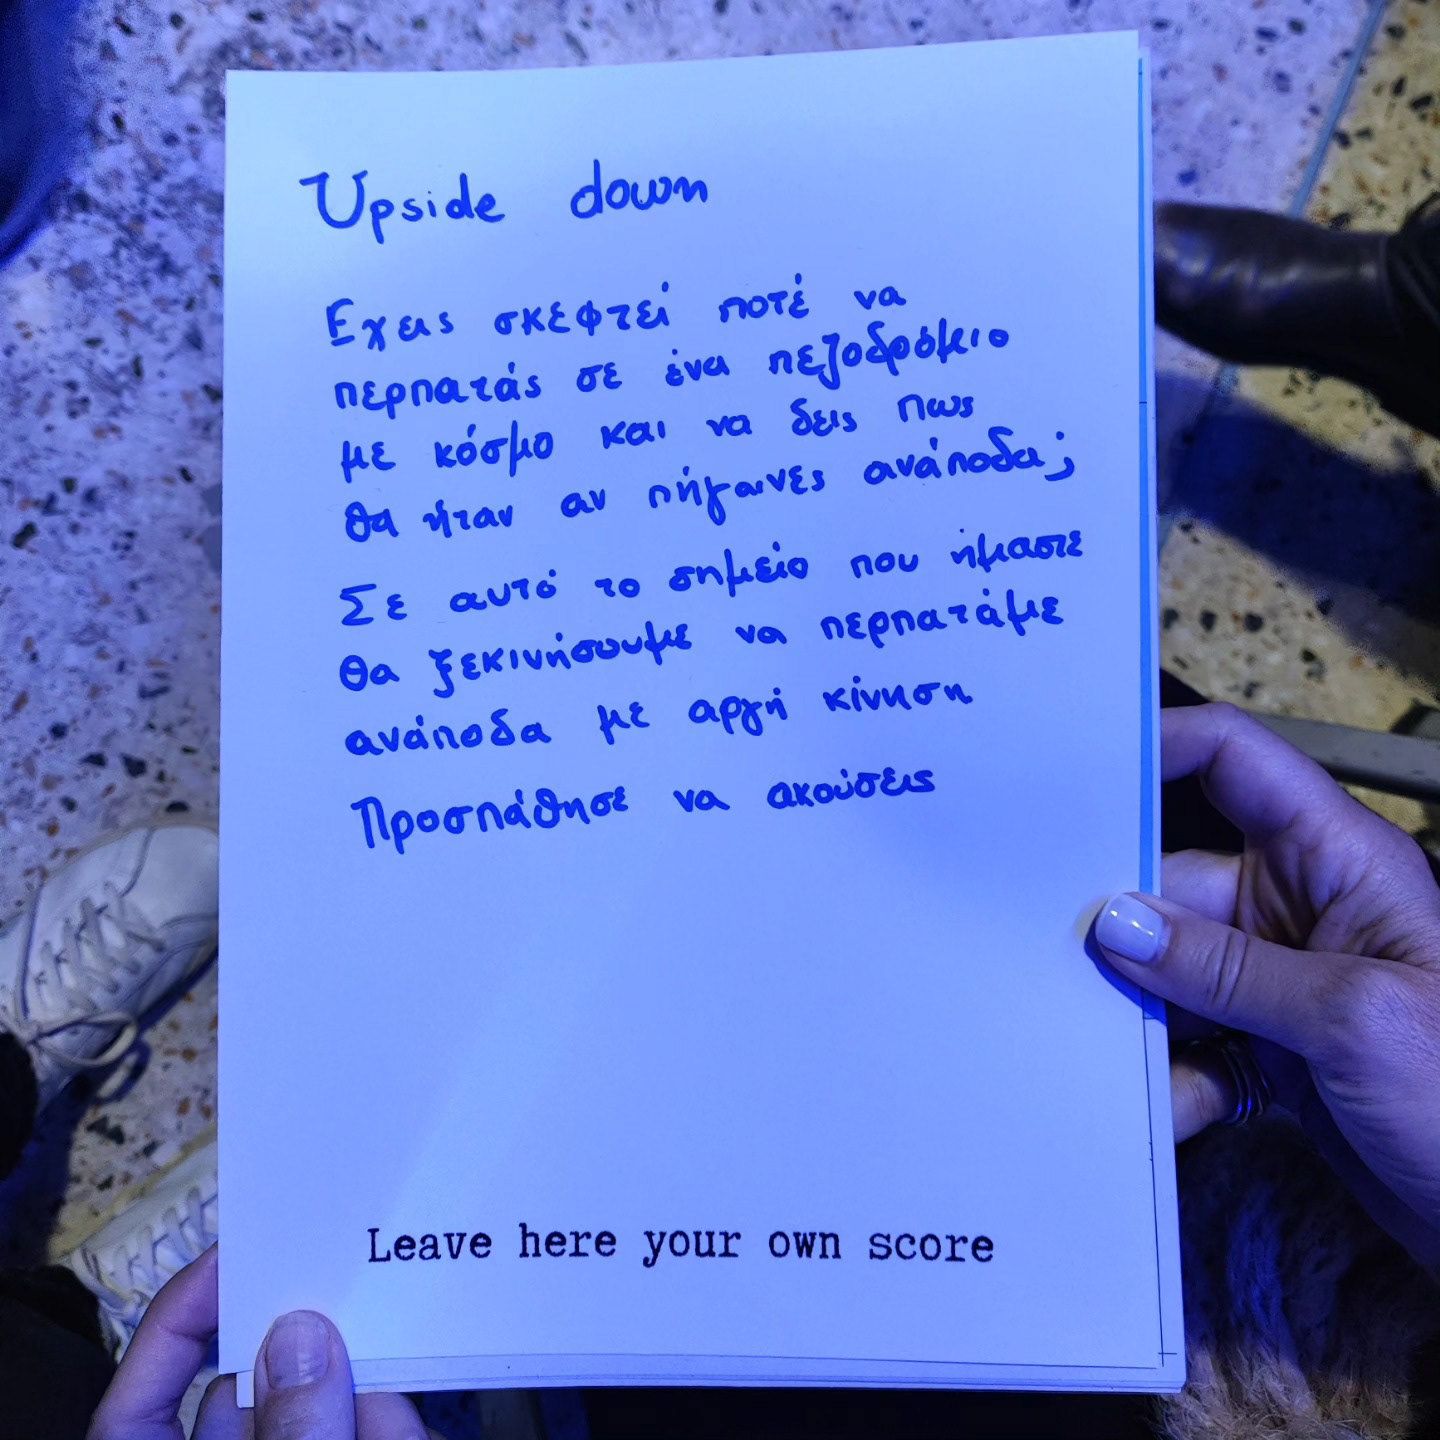 Upside down
Εχεις σκεφτεί ποτέ να
περπατάς σε ένα πεζοδρόμιο
με κόσμο και να δεις πως
θα ήταν αν πήγαινες ανάποδα;
Σε αυτό το σημείο που ήμαστε
θα ξεκινήσουμε να περπατάμε
ανάποδα με αργή κίνηση
Προσπάθησε να ακούσεις
Leave here your own score